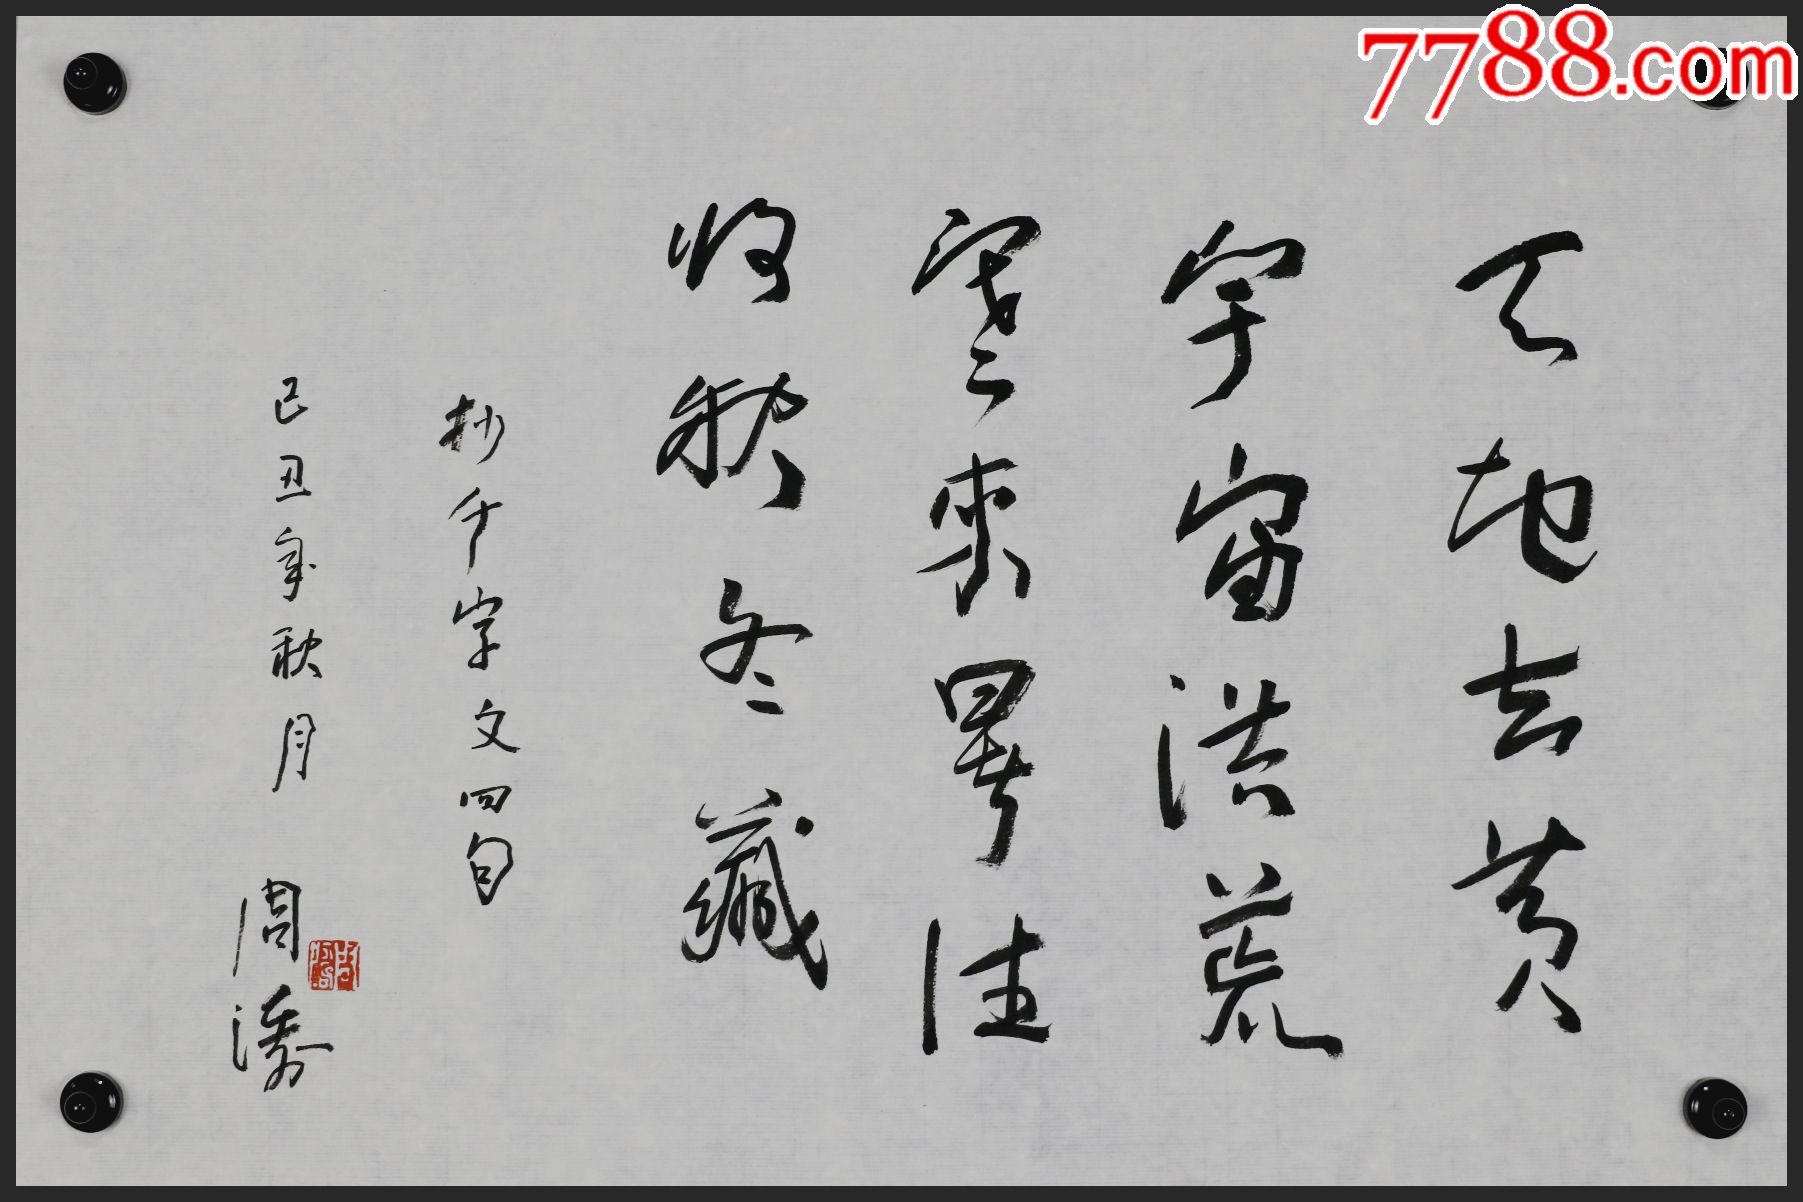 7788.com
天地玄黄
宇宙洪荒
寒来暑往
收秋冬藏
抄千字文四句
己丑年秋月 周涛